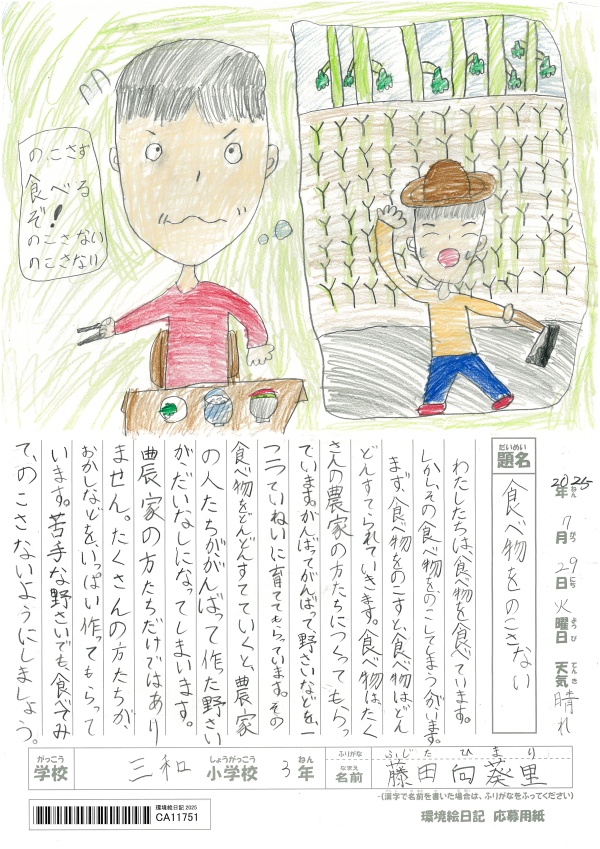 のこさず
食べる
ぞ!
のこさない
のこさない
2025年 7月 29日 火曜日 天気 晴れ
ねん がつ にち ようび てんき
だいめい
題名
食べ物をのこさない
わたしたちは、食べ物を食べています。
しかし、その食べ物をのこしてしまう人がいます。
まず、食べ物をのこすと、食べ物はどん
どんすてられていきます。食べ物は、たく
さんの農家の方たちにつくってもらっ
ています。がんばってがんばって野さいなどを、一
つ一つていねいに育ててもらっています。その
食べ物をどんどんすてていくと、農家
の人たちががんばって作た野さい
が、だいなしになってしまいます。
農家の方たちだけではあり
ません。たくさんの方たちが
おかしなどをいっぱい作ってもらって
います。苦手な野さいでも、食べてみ
て、のこさないようにしましょう。
がっこう しょうがっこう ねん ふりがな ふじた ひまり
学校 三和 小学校 3年 なまえ 名前 藤田向葵里
(漢字で名前を書いた場合は、ふりがなをふってください)
環境絵日記 2025
CA11751
環境絵日記 応募用紙